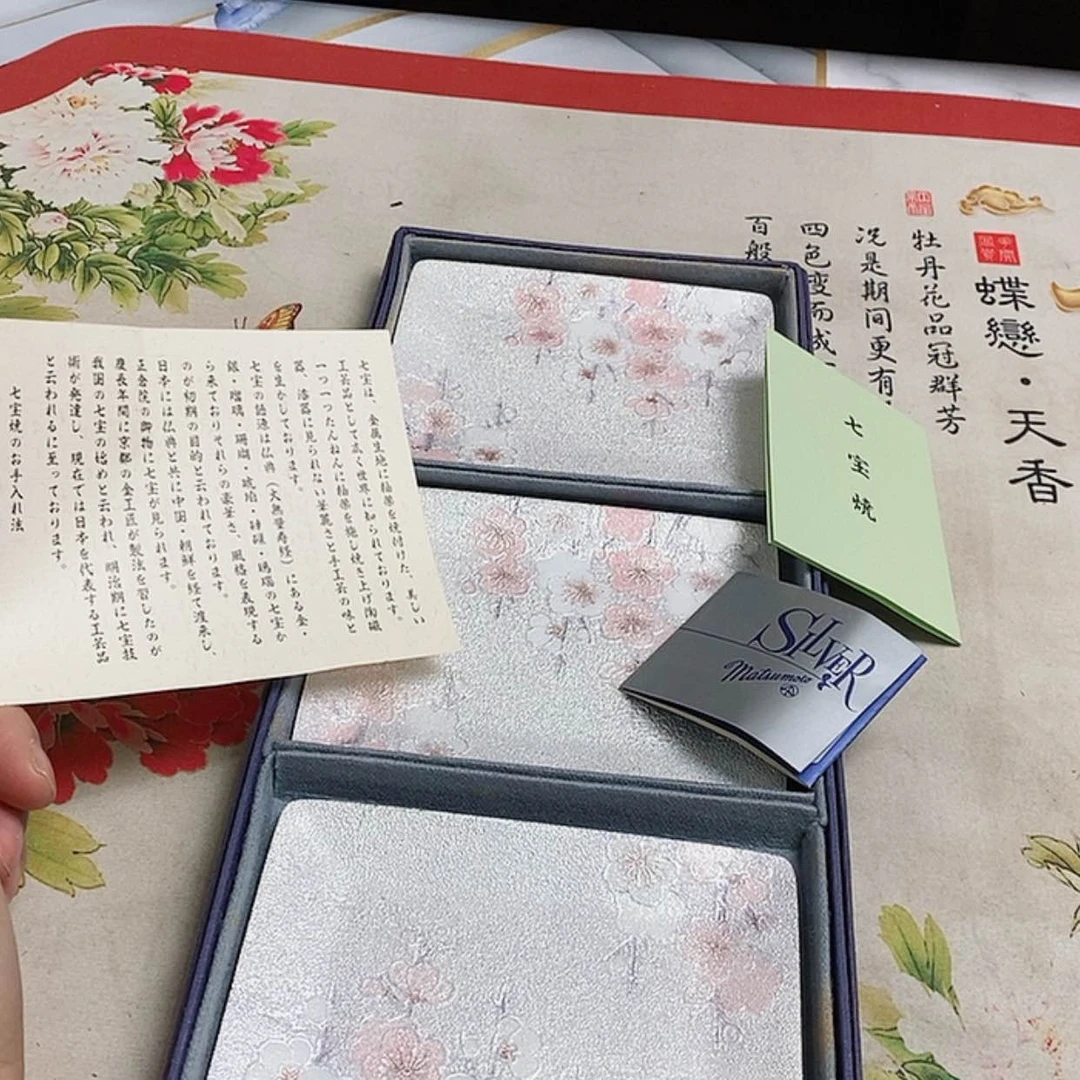 七宝は、金属生地に釉薬を焼付けた、美しい
工芸品として広く世界に知られております。
一つ一つたんねんに釉薬を施し焼き上げ陶磁
器、漆器に見られない華麗さと手工芸の味と
を生かしております。
七宝の語源は仏典（大無量寿経）にある金・
銀・瑠璃・珊瑚・琥珀・硨磲・瑪瑙の七宝か
ら来ておりそれらの豪華さ、風格を表現する
のが初期の目的と云われております。
日本には仏典と共に中国・朝鮮を経て渡来し、
正倉院の御物に七宝が見られます。
慶長年間に京都の金工匠が製法を習したのが
我国の七宝の始めと云われ、明治期に七宝技
術が発達し、現在では日本を代表する工芸品
と云われるに至っております。
七宝焼のお手入れ法
七宝焼
SILVER
Matsumoto
蝶戀・天香
牡丹花品冠群芳
況是期间更有
四色变而成
百般